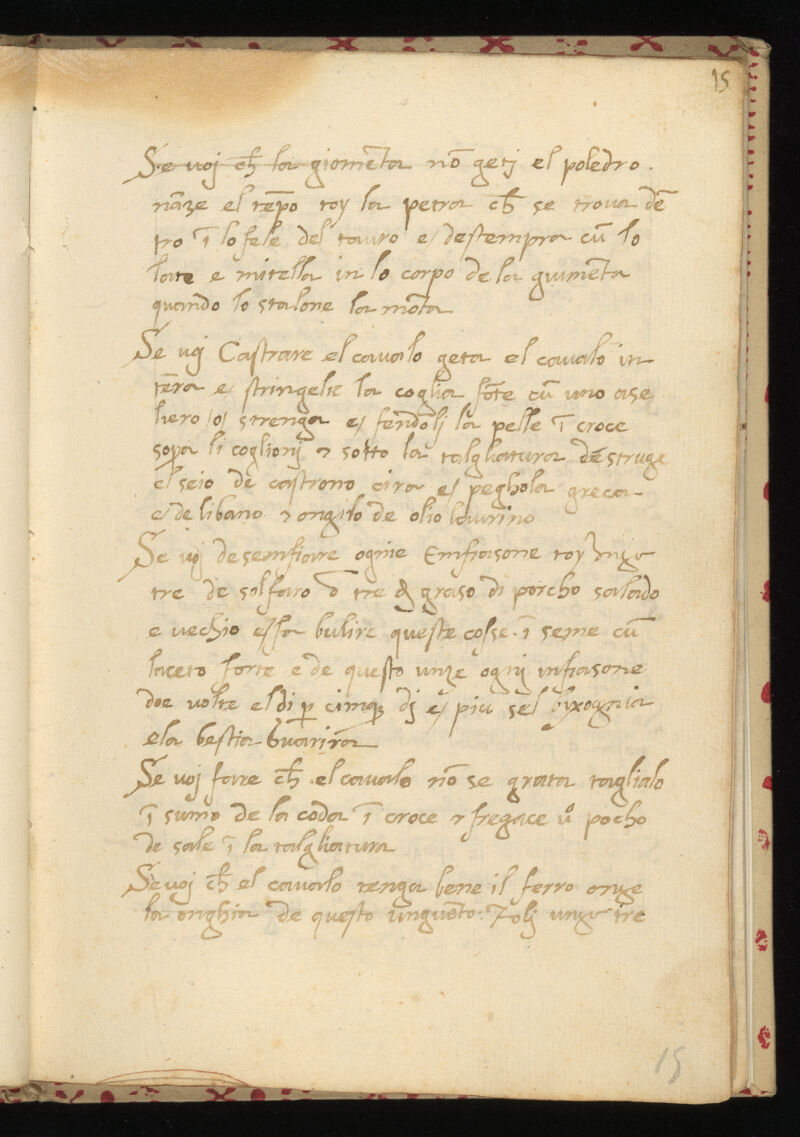 15
Se uoj ch̄ la giomēta nō getj el poledro.
nāze el tēpo toy la petra ch̄ se troua dē
tro ī lo fele del tauro e/ destempra cū lo
late e mitella in lo corpo de la giumēta
quando lo stalone la mōta
Se uoj Castrare el cavalo geta el cavalo in
tēra e/ stringelie la coglia fōte cū uno ase
liero /o/ strenga e/ fendolj la pelle ī croce
sopra li coglionj & sotto la talgliatura destruge
el seio de castrono cira e/ peghola greca
e/ de libano & ongilo de olio laurino
Se uoj desemfiare ognie Emfiasone toy unze
tre de solfaro tre de graso di porcho salado
e uechio e/ fa bulire queste cosse. ī seme cū
laceto forte e de questo unze ognj infiasone
doe uolte el di p̄ cinque dj e/ piu sel bixognia
ela bestia Guarira
Se uoj fare ch̄ el cavalo nō se grata taglialo
ī sumo de la coda ī croce & fregace uº pocho
de sale ī la talgliatura
Se uoj ch̄ el cavalo tenga bene il ferro onze
la onghia de questo unguēto: Tolj unze tre
15